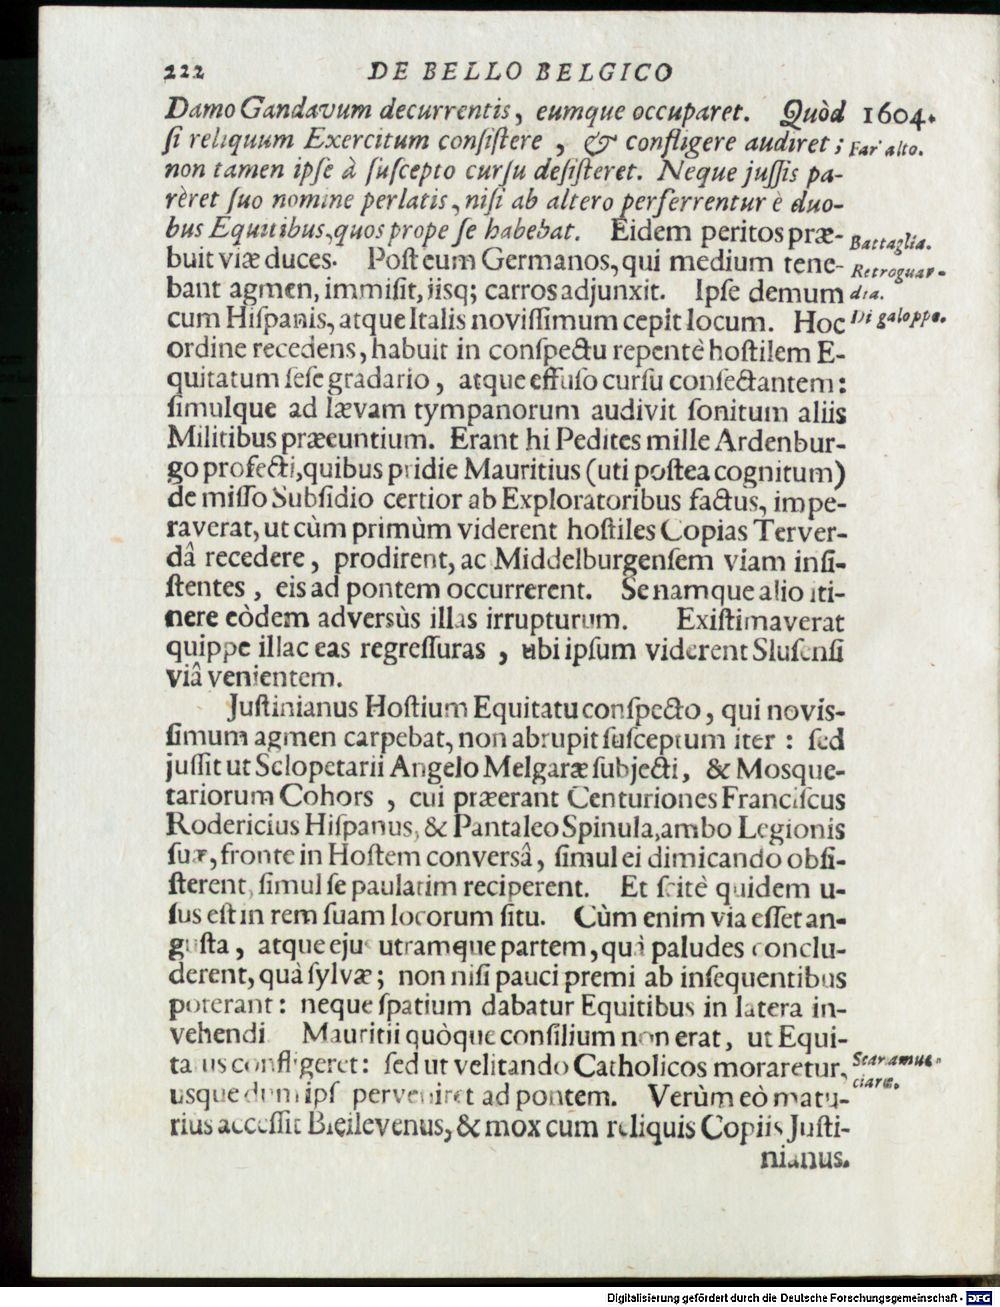 222 DE BELLO BELGICO
Damo Gandavum decurrentis, eumque occuparet. Quòd 1604.
ſi reliquum Exercitum conſiſtere, & confligere audiret; Far' alto.
non tamen ipſe à ſuſcepto curſu deſiſteret. Neque juſſis pa-
rèret ſuo nomine perlatis, niſi ab altero perferrentur è duo-
bus Equitibus, quos prope ſe habebat. Eidem peritos præ- Battaglia.
buit viæ duces. Poſt eum Germanos, qui medium tene- Retroguar-
bant agmen, immiſit, iisq; carros adjunxit. Ipſe demum dia.
cum Hiſpanis, atque Italis noviſſimum cepit locum. Hoc Di galoppo.
ordine recedens, habuit in conſpectu repentè hoſtilem E-
quitatum ſeſe gradario, atque effuſo curſu conſectantem:
ſimulque ad lævam tympanorum audivit ſonitum aliis
Militibus præeuntium. Erant hi Pedites mille Ardenbur-
go profecti, quibus pridie Mauritius (uti poſtea cognitum)
de miſſo Subſidio certior ab Exploratoribus factus, impe-
raverat, ut cùm primùm viderent hoſtiles Copias Terver-
dâ recedere, prodirent, ac Middelburgenſem viam inſi-
ſtentes, eis ad pontem occurrerent. Se namque alio iti-
nere eòdem adversùs illas irrupturum. Exiſtimaverat
quippe illac eas regreſſuras, ubi ipſum viderent Sluſenſi
viâ venientem.
Juſtinianus Hoſtium Equitatu conſpecto, qui novis-
ſimum agmen carpebat, non abrupit ſuſceptum iter: ſed
juſſit ut Sclopetarii Angelo Melgaræ ſubjecti, & Mosque-
tariorum Cohors, cui præerant Centuriones Franciſcus
Rodericius Hiſpanus, & Pantaleo Spinula, ambo Legionis
ſuæ, fronte in Hoſtem conversâ, ſimul ei dimicando obſi-
ſterent, ſimul ſe paulatim reciperent. Et ſcitè quidem u-
ſus eſt in rem ſuam locorum ſitu. Cùm enim via eſſet an-
guſta, atque ejus utramque partem, quà paludes conclu-
derent, quà ſylvæ; non niſi pauci premi ab inſequentibus
poterant: neque ſpatium dabatur Equitibus in latera in-
vehendi. Mauritii quòque conſilium non erat, ut Equi-
tatus confligeret: ſed ut velitando Catholicos moraretur, Scaramuc-
usque dum ipſe perveniret ad pontem. Verùm eò matu- ciare.
rius acceſſit Bieilevenus, & mox cum reliquis Copiis Juſti-
nianus.
Digitalisierung gefördert durch die Deutsche Forschungsgemeinschaft - DFG